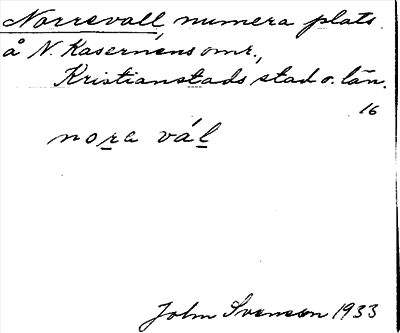 Norrevall, numera plats
å N. Kasernens omr.,
Kristianstads stad o. län.
16
nora vál
John Svenson 1933